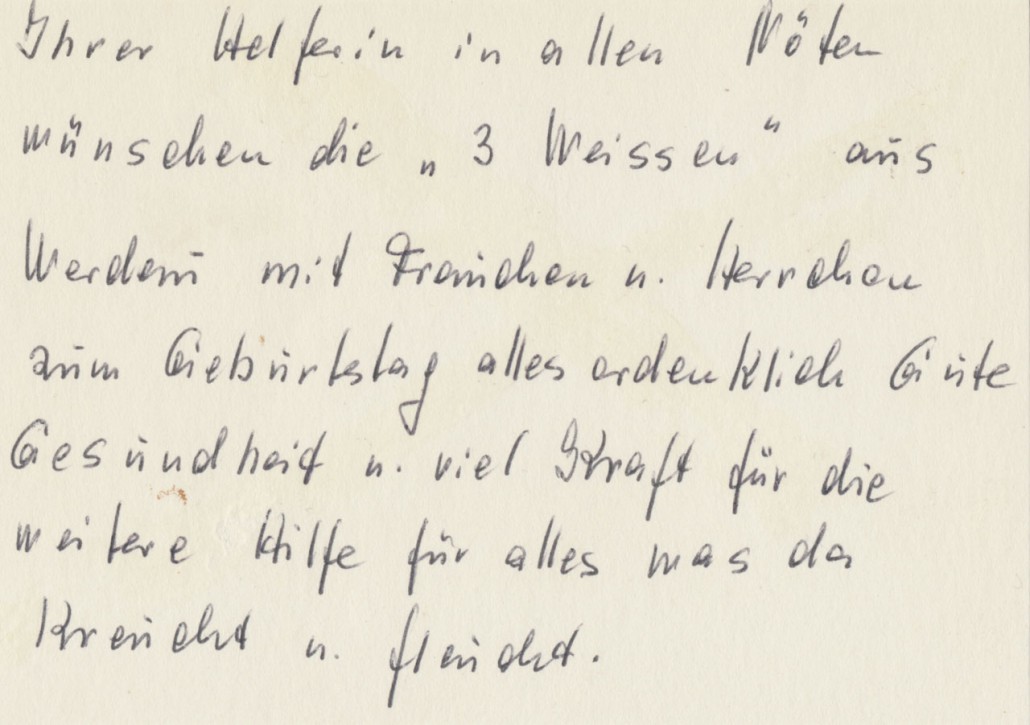 Ihrer Helferin in allen Nöten
wünschen die „3 Weissen" aus
Werdau mit Frauchen u. Herrchen
zum Geburtstag alles erdenklich Gute
Gesundheit u. viel Kraft für die
weitere Hilfe für alles was da
kreucht u. fleucht.